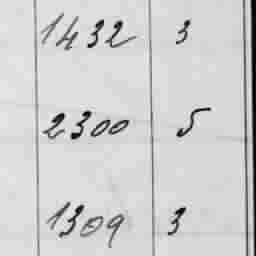 1432 3
2300 5
1309 3